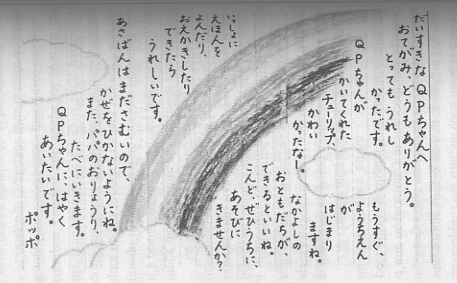 だいすきな QPちゃんへ
おてがみ、どうもありがとう。
とっても うれし
かったです。
QPちゃんが
かいてくれた
チューリップ、
かわい
かったなー。
もうすぐ、
ようちえん
が
はじまり
ますね。
なかよしの
おともだちが、
できるといいね。
こんど、ぜひうちに、
あそびに
きませんか?
いっしょに
えほんを
よんだり、
おえかきしたり
できたら
うれしいです。
あさばんはまださむいので、
かぜをひかないようにね。
また、パパのおりょうり、
たべにいきます。
QPちゃんに、はやく
あいたいです。
ポッポ